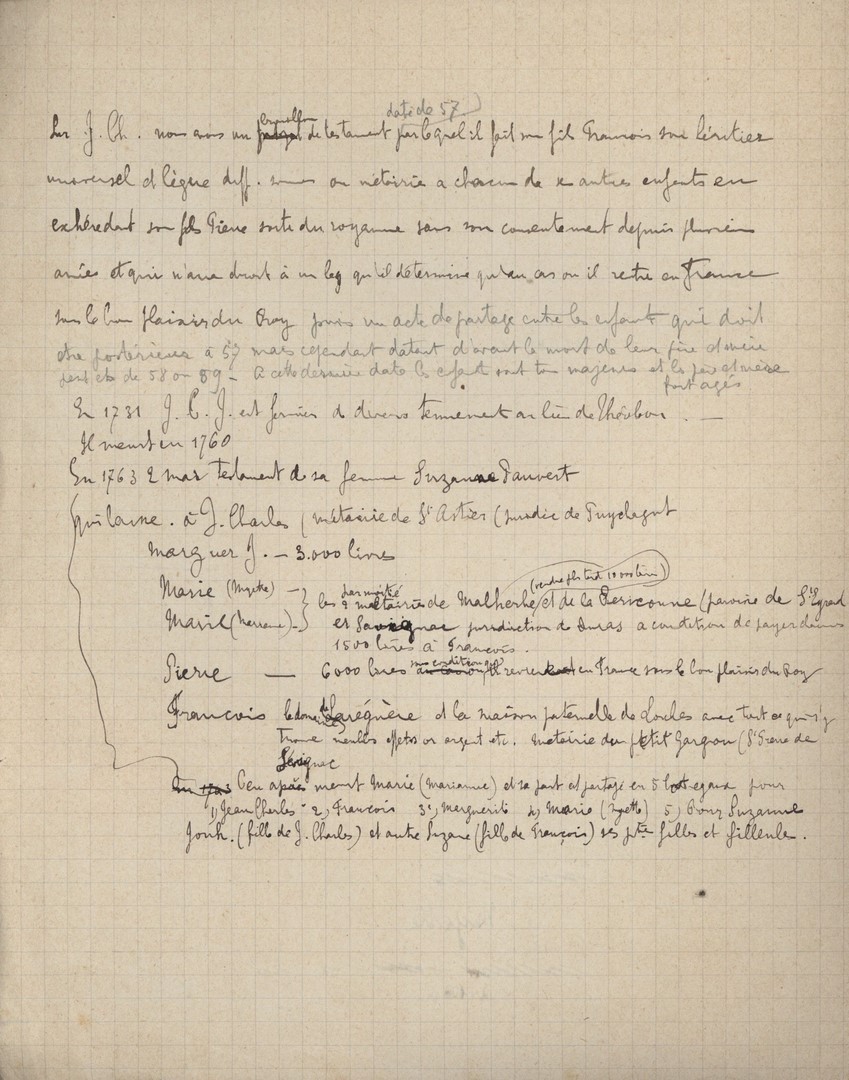 daté de 57
brouillon
Sur J. Ch. nous avons un de testament par lequel il fait son fils Francois son héritier
universel et lègue diff. sommes ou métairie a chacun de se autres enfents en
exhéredant son fils Pierre sorti du royaume sans son consentement depuis plusieurs
années et qui n'aura droit à un leg qu'il détermine qu'au cas ou il rentre en France
sous le bon plaisir du Roy puis un acte de partage entre les enfants qui doit
etre postérieur à 57 mais cependant datant d'avant le mort de leur père et mère
de 58 ou 59 - A cette dernière date les enfant sont tous majeurs et les père et mère
fort agés
En 1731 J. C. J. est fermier de divers tennement au lieu de Théobon . —
Il meurt en 1760
En 1763 2 mar testament de sa femme Suzanne Dauvert
qui laisse . à J. Charles ( métairie de St Astier (juridic de Puydagut
Marguer J. — 3.000 livres
(vendre pls tard 10 000 livres)
par moitié
Marie (Myette) — } les 2 métairies de Malherbe et de la (paroisse de St Eyrad
Marie (Marianne) — } et Savignac jurisdiction de Duras a condition de payer
1500 livres à Francois .
sous condition qu'il
Pierre — 6000 livres en France sous le bon plaisir du Roy
Francois le domaine de Laregnère et la maison paternelle de Loches avec tout ce qui s'y
trouve meubles effets or argent etc. Metairie du petit Gargrou (St Pierre de
Lévignac
Peu après meurt Marie (Marianne) et sa part est partagé en 5 lots egaux pour
1) Jean Charles - 2) Francois 3) Marguerite 4) Marie (Myette) 5) Pour Suzanne
Jonh. (fille de J. Charles) et autre Suzane (fille de François) ses ptes filles et filleule .